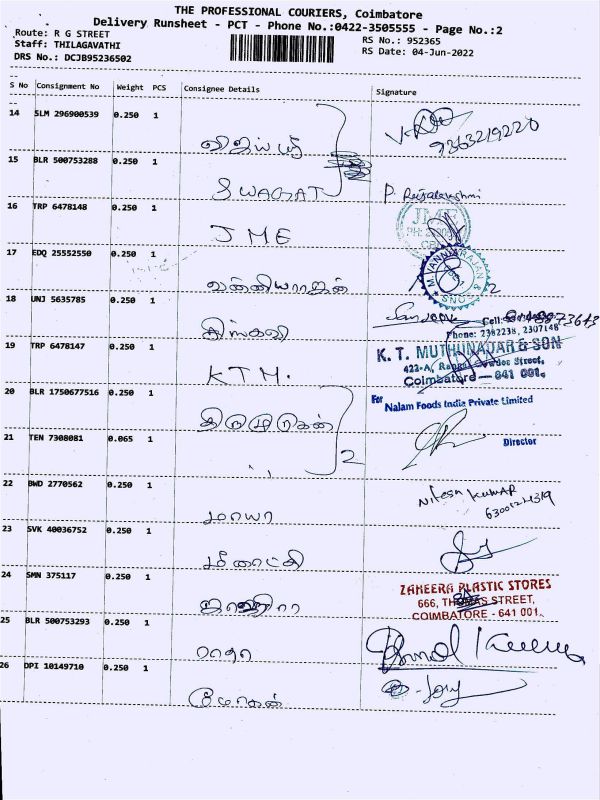 THE PROFESSIONAL COURIERS, Coimbatore
Delivery Runsheet - PCT - Phone No.:0422-3505555 - Page No.:2
Route: R G STREET
RS No.: 952365
Staff: THILAGAVATHI
RS Date: 04-Jun-2022
DRS No.: DCJB95236502
S No Consignment No Weight PCS Consignee Details Signature
14 SLM 296900539 0.250 1
9363219220
15 BLR 500753288 0.250 1
SWAGAT
P. Rajalakshmi
16 TRP 6478148 0.250 1
JME
JME
17 EDQ 25552550 0.250 1
வன்னியராஜன்
M. VANNIARAJAN & SONS
18 UNJ 5635785 0.250 1
Phone: 2382238, 2307148
19 TRP 6478147 0.250 1
KTM.
K. T. MUTHUNADAR & SON
Coimbatore - 641 001.
20 BLR 1750677516 0.250 1
திருமுருகன்
2
For Nalam Foods India Private Limited
Director
21 TEN 7308081 0.065 1
22 BWD 2770562 0.250 1
மாயா
Nitesh Kumar
23 SVK 40036752 0.250 1
மீனாட்சி
24 SMN 375117 0.250 1
ஜாஹிரா
ZAHEERA PLASTIC STORES
666, THOMAS STREET,
COIMBATORE - 641 001.
25 BLR 500753293 0.250 1
ராதா
26 DPI 10149710 0.250 1
மோகன்